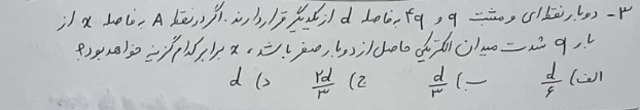 ۳- دوبار نقطه‌ای و مشت q و ۴q به فاصله d از یکدیگر قرار دارند. اگر در نقطه A به فاصله x از
بار q شدت میدان الکتریکی حاصل از دو بار صفر باشد، x برابر کدام گزینه خواهد بود؟
الف) d/۶ ب) d/۳ ج) ۲d/۳ د) d